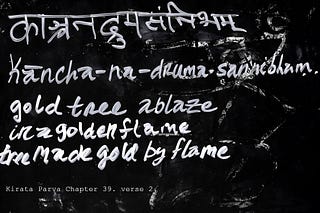 काञ्चनद्रुमसंनिभम
Kāncha-na-druma-sannibham.
gold tree ablaze
in a golden flame
tree made gold by flame
Kirata Parva Chapter 39. verse 2